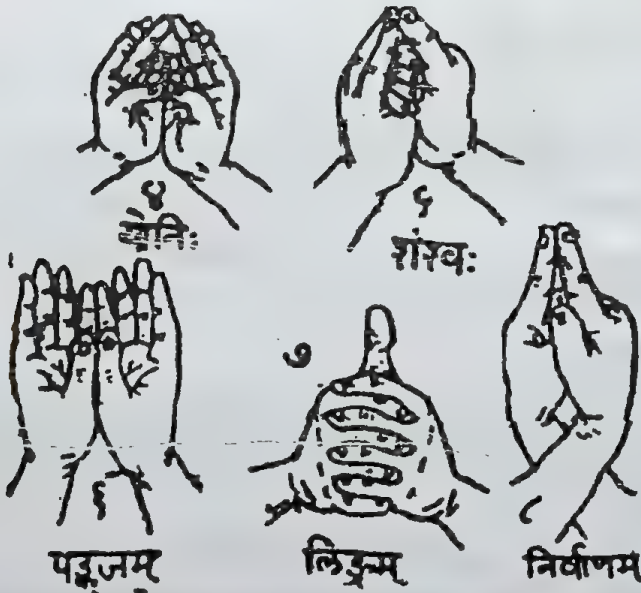 ४
योनिः
५
शंखः
६
पङ्कजम्
७
लिङ्गम्
८
निर्वाणम्